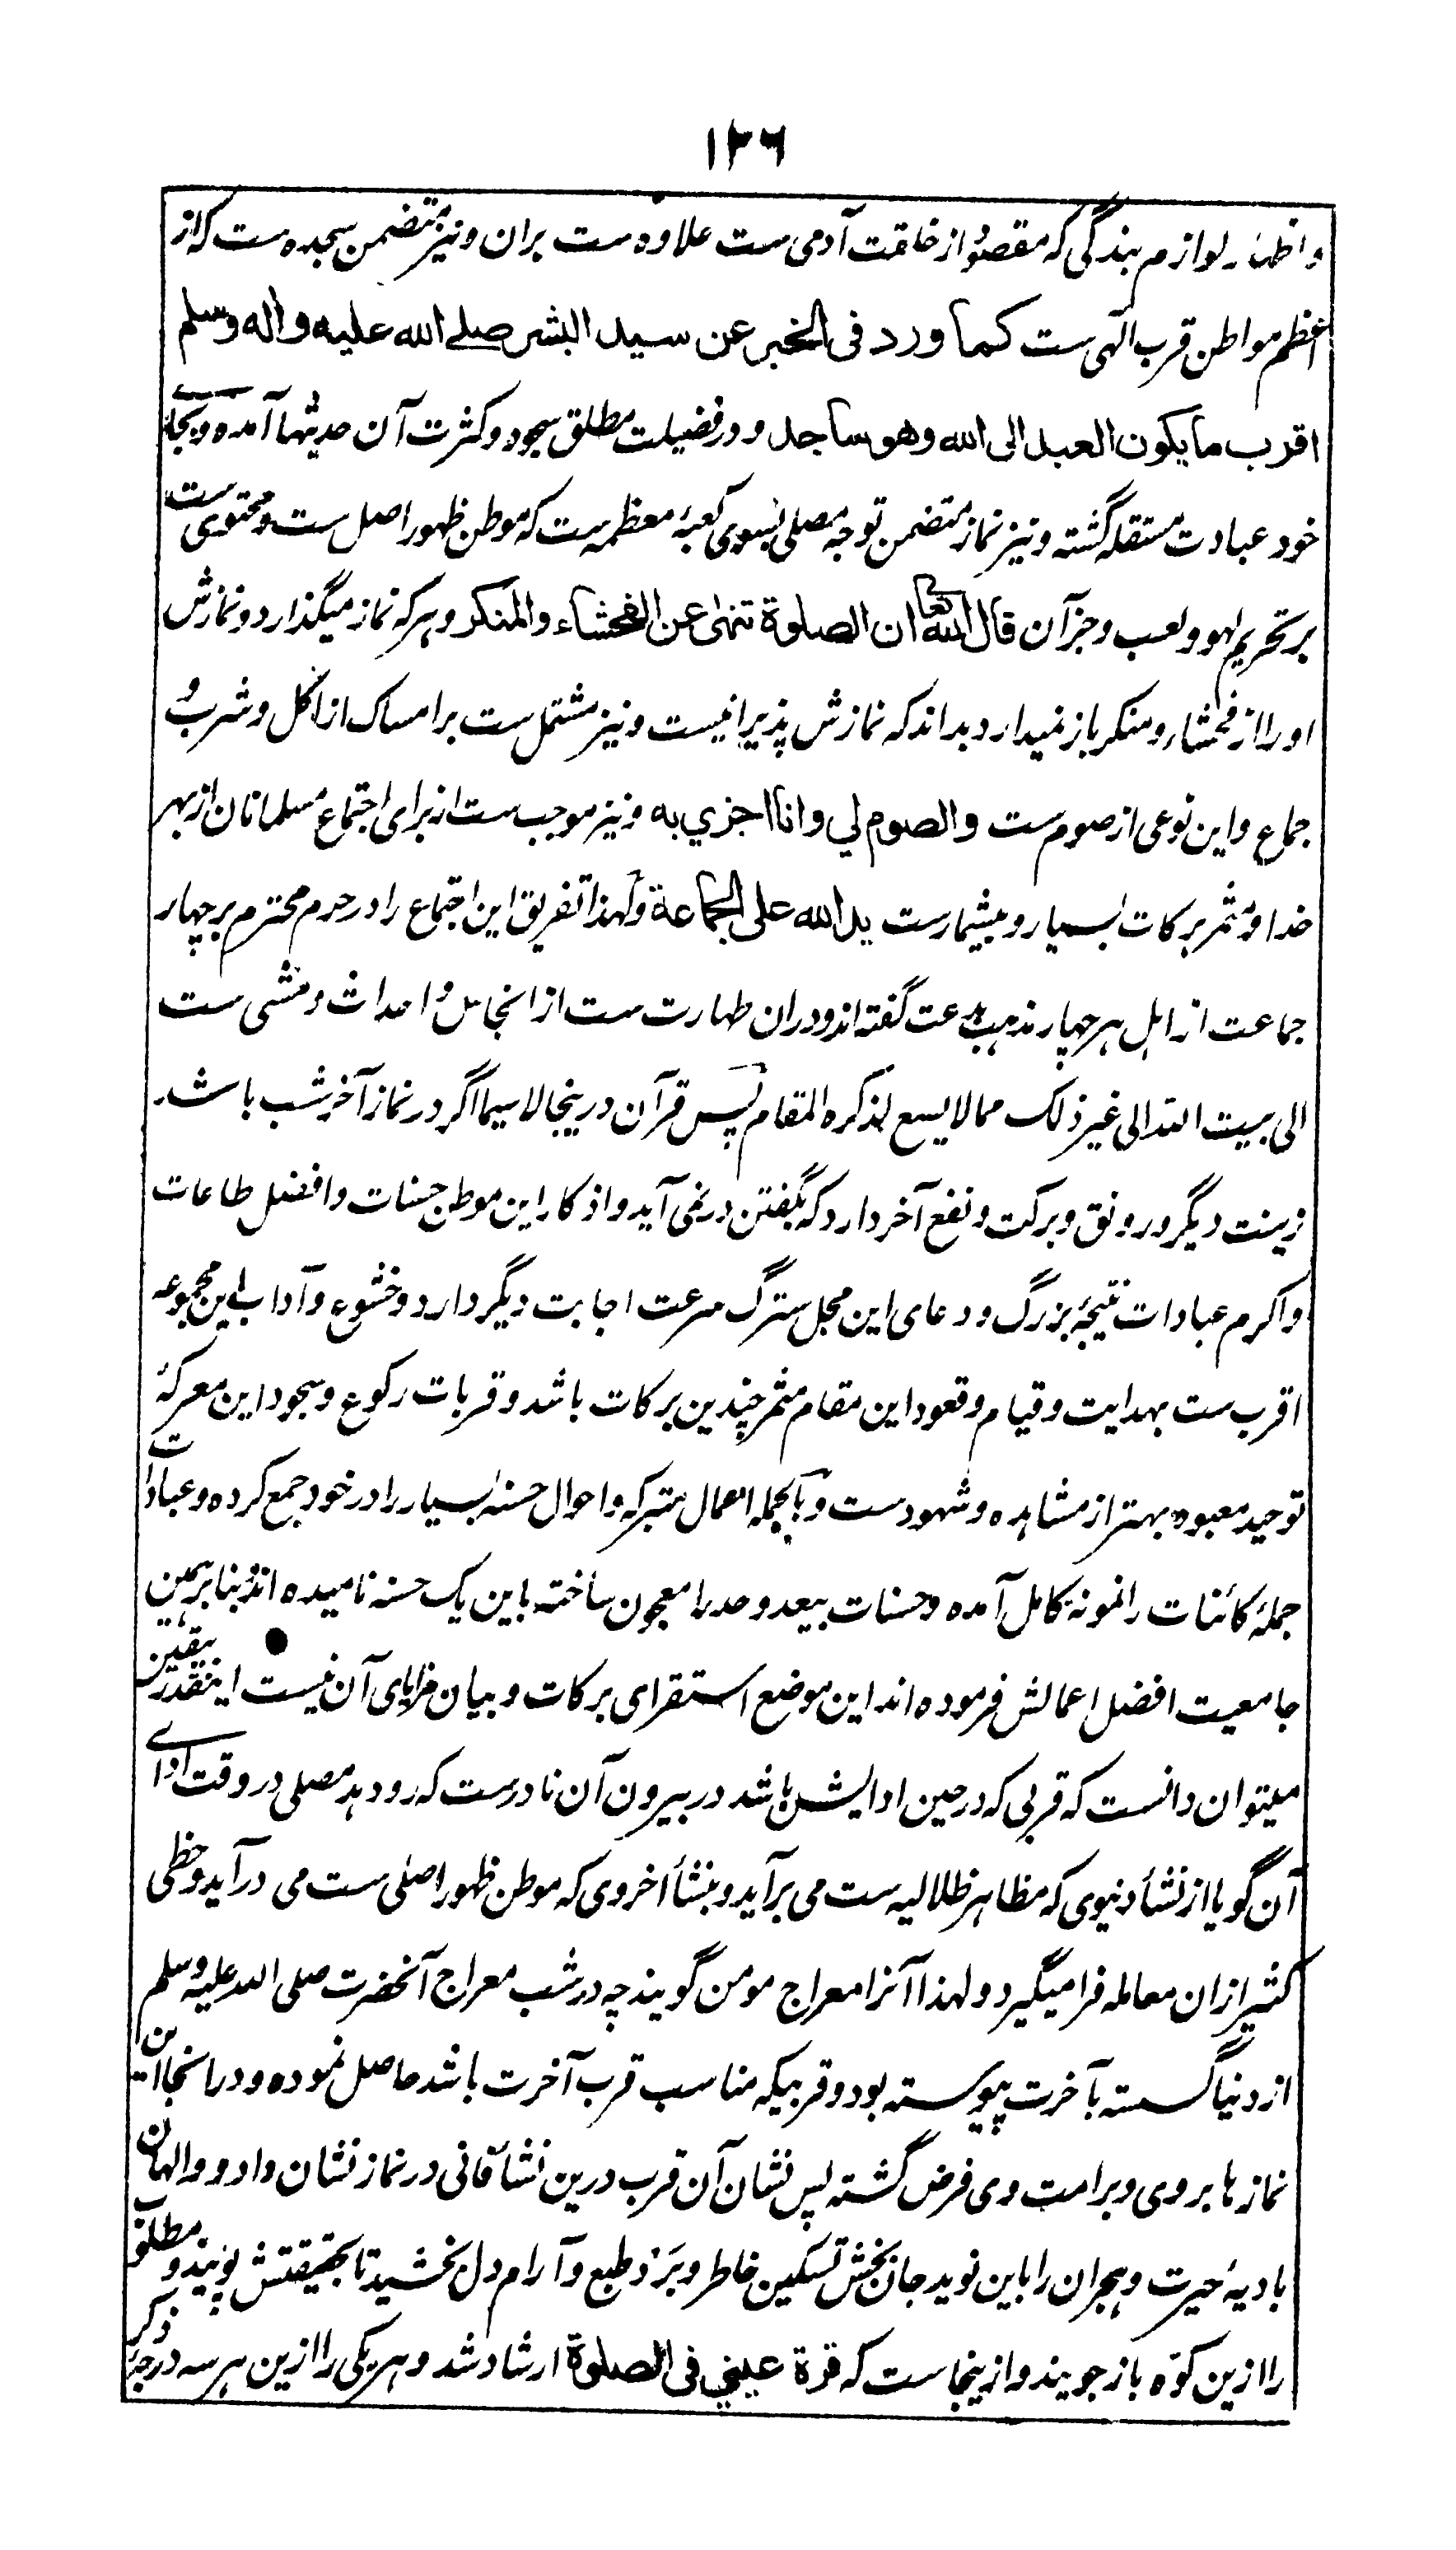 ۱۲۶
و اظهار لوازم بندگی که مقصود از خلقت آدمی ست علاوه ست بران و نیز متضمن سجده ست که از
اعظم مواطن قرب الهی ست کما ورد فی الخبر عن سید البشر صلے الله علیه و اله وسلم
اقرب ما یکون العبد الی الله وهو ساجد و در فضیلت مطلق سجود و کثرت آن حدیثها آمده و بجاے
خود عبادت مستقله گشته و نیز نماز متضمن توجه مصلی بسوی کعبۀ معظمه ست که موطن ظهور اصل ست و محتوی ست
بر تحریم لهو و لعب و جز آن قال الله تعا ان الصلوة تنهی عن الفحشاء والمنکر و هر که نماز میگذارد و نمازش
او را از فحشاء و منکر باز نمیدارد بداند که نمازش پذیرا نیست و نیز مشتمل ست بر امساک از اکل و شرب و
جماع و این نوعی از صوم ست والصوم لي وانا اجزي به و نیز موجب ست از برای اجتماع مسلمانان از بهر
خدا و مثمر برکات بسیار و بیشمارست ید الله علی الجماعة و لهذا تفریق این اجتماع را در حرم محترم بر چهار
جماعت از اهل هر چهار مذهب بدعت گفته اند و دران طهارت ست از انجاس و احداث و مشی ست
الی بیت الله الی غیر ذلک مما لا یسع لذکره المقام پس قرآن درینجا لاسیما اگر در نماز آخر شب باشد
زینت دیگر و رونق و برکت و نفع آخر دارد که بگفتن در نمی آید و اذکار این موطن حسنات و افضل طاعات
و اکرم عبادات نتیجۀ بزرگ و دعای این محل سترگ سرعت اجابت دیگر دارد و خشوع و آداب این مجموعه
اقرب ست بهدایت و قیام و قعود این مقام مثمر چندین برکات باشد و قربات رکوع و سجود این معرکۀ
توحید معبود بهتر از مشاهده و شهودست و بالجمله اعمال متبرکه و احوال حسنۀ بسیار را در خود جمع کرده و عبادات
جملۀ کائنات را نمونۀ کامل آمده و حسنات بیعد و حد را معجون ساخته باین یک حسنه نامیده اند و بنابر همین
جامعیت افضل اعمالش فرموده اند این موضع استقرای برکات و بیان مزایای آن نیست اینقدر بیقین
میتوان دانست که قربی که در حین ادایش باشد در بیرون آن نادرست که رو دهد مصلی در وقت اداے
آن گویا از نشأ دنیوی که مظاهر ظلالیه ست می برآید و بنشأ اخروی که موطن ظهور اصلی ست می درآید و حظی
کثیر ازان معامله فرا میگیرد و لهذا آنرا معراج مومن گویند چه در شب معراج آنحضرت صلی الله علیه وسلم
از دنیا گسسته بآخرت پیوسته بود و قربیکه مناسب قرب آخرت باشد حاصل نموده و در انجا این
نمازها بر وی و بر امت وی فرض گشته پس نشان آن قرب درین نشأ فانی در نماز نشان داد و والهان
بادیۀ حیرت و هجران را باین نوید جان بخش تسکین خاطر و برد طبع و آرام دل بخشید تا بحقیقتش پویند و مطلوب
را ازین کوّه باز جویند و ازینجاست که قرة عیني فی الصلوة ارشاد شد و هر یکی را ازین هر سه درجۀ ذکر